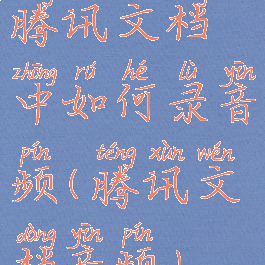 腾讯文档
zhōng rú hé lù yīn
中如何录音
pín téng xùn wén
频(腾讯文
dàng yīn pín
档音频)